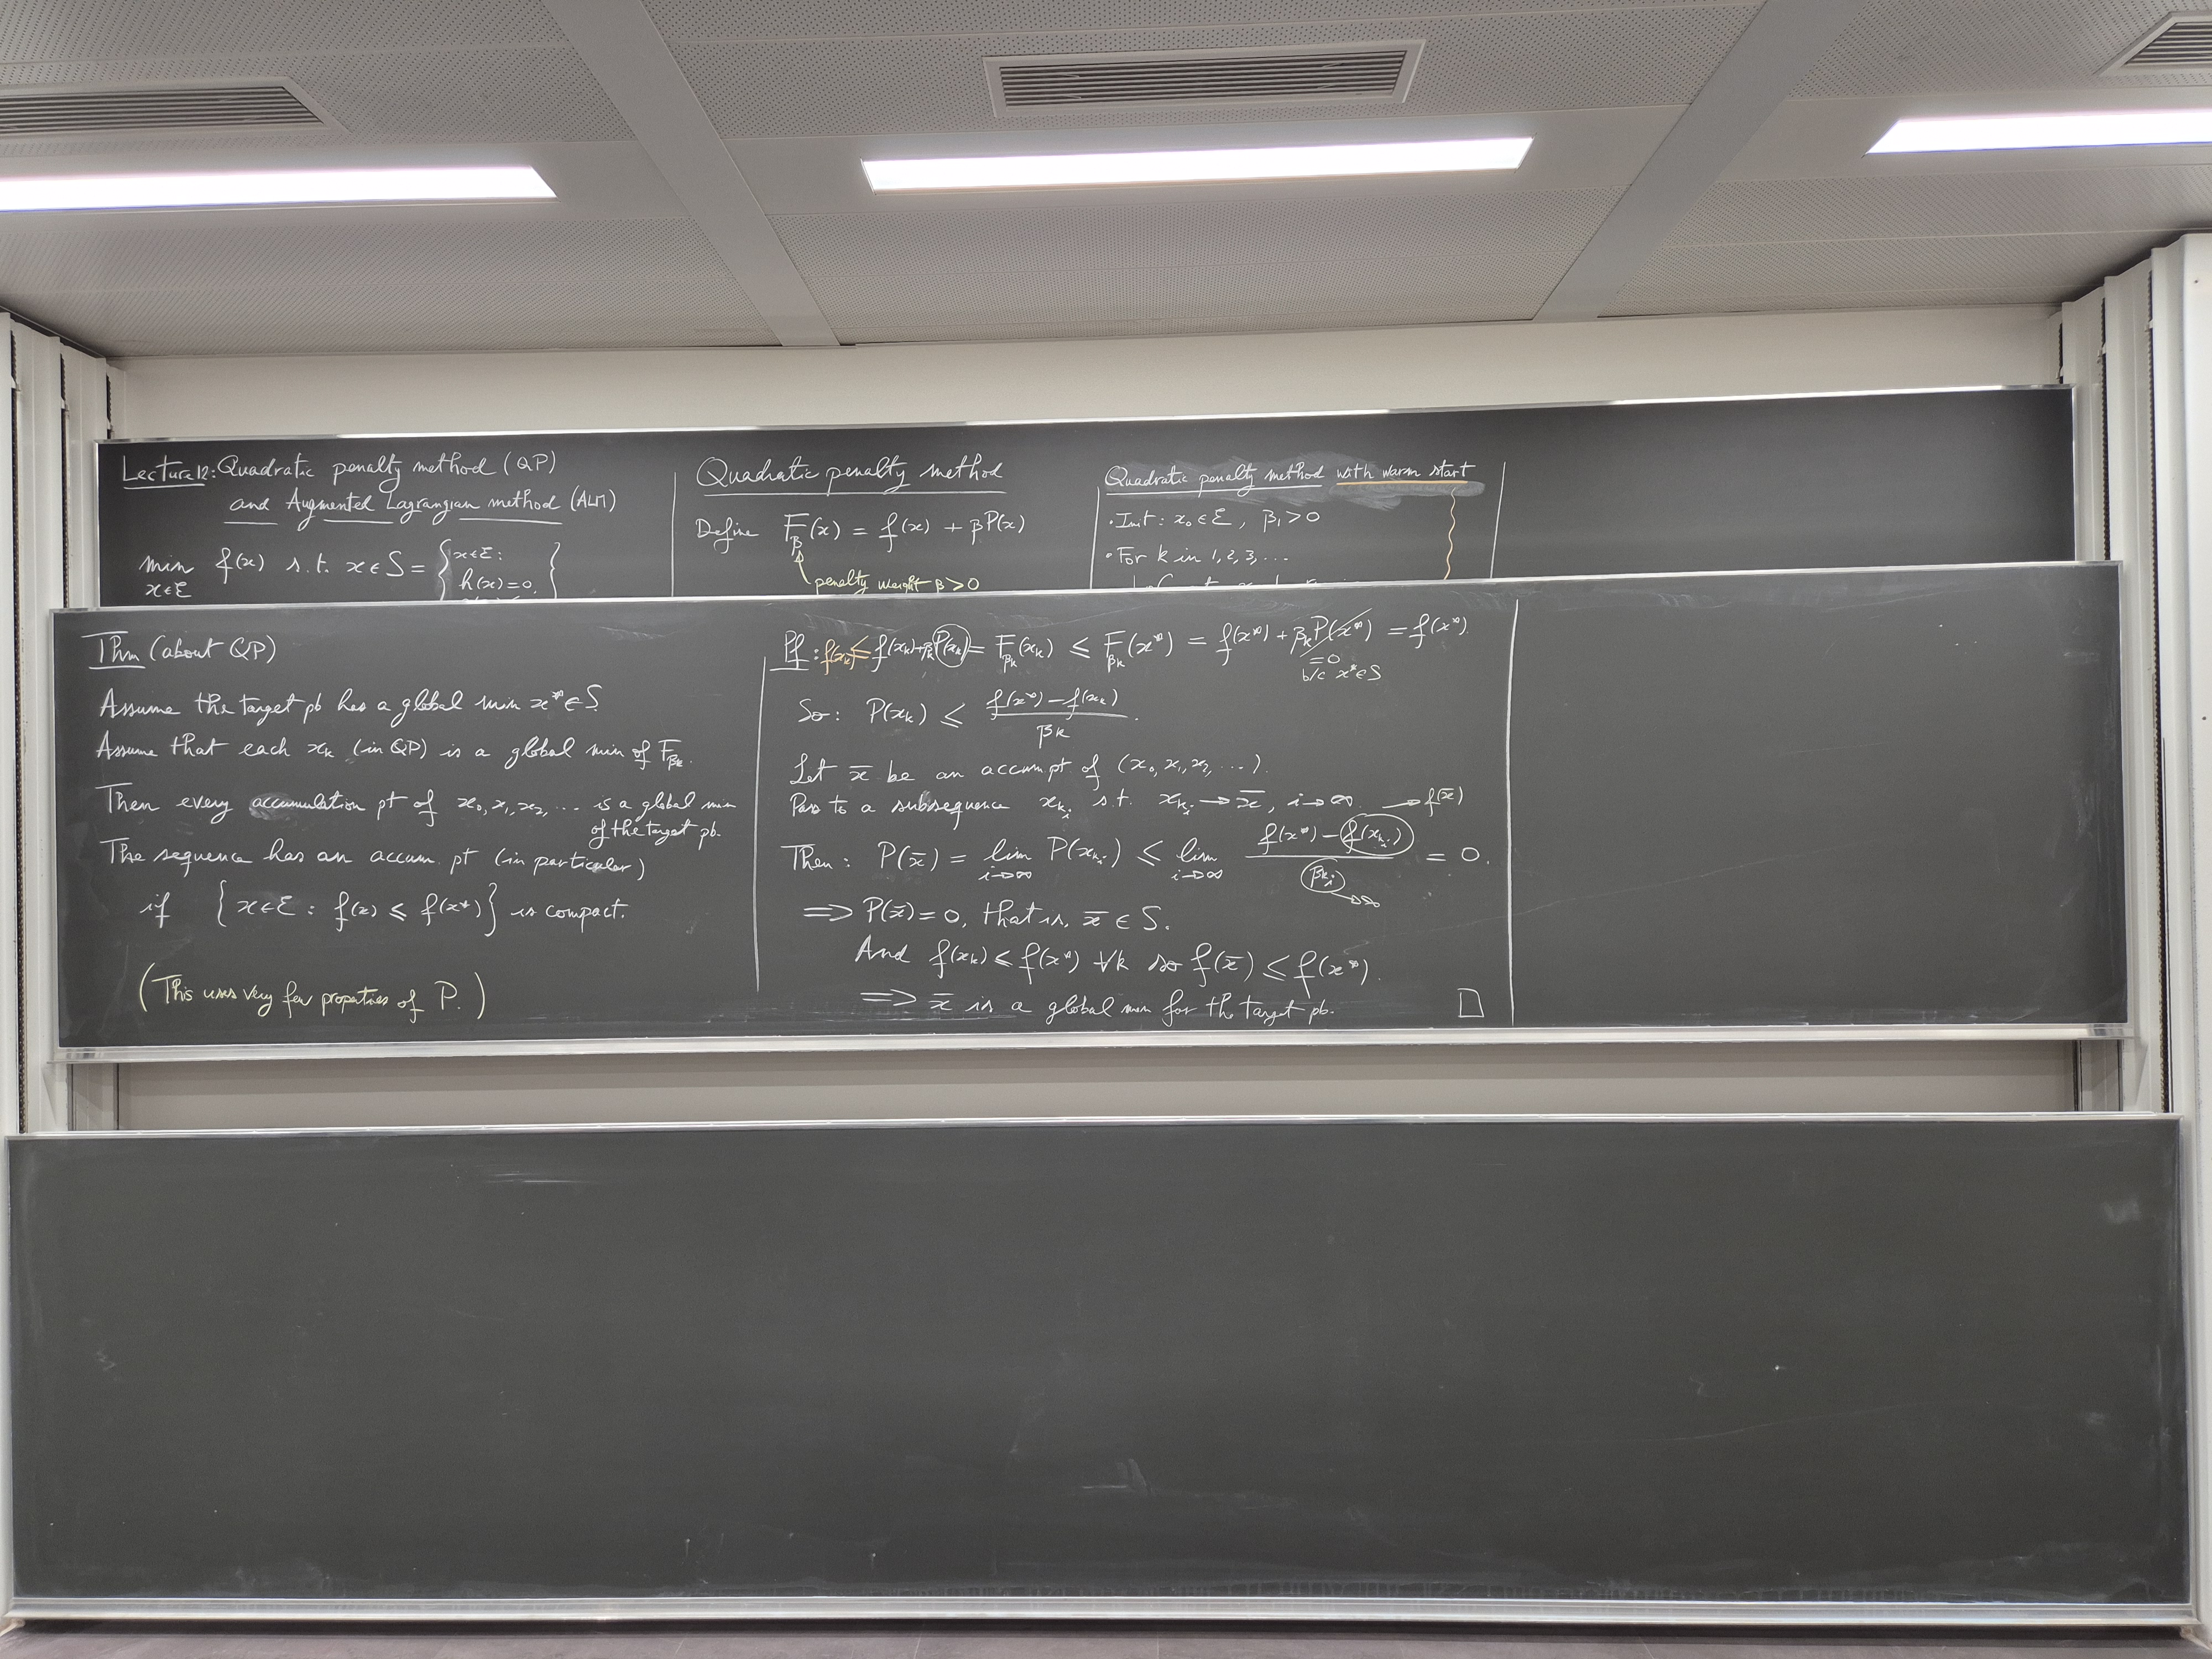 Lecture 12: Quadratic penalty method (QP)
and Augmented Lagrangian method (ALM)
min f(x) s.t. x ∈ S = { x∈ℰ:
x∈ℰ h(x)=0, }
Quadratic penalty method
Define F_β(x) = f(x) + βP(x)
penalty weight β>0
Quadratic penalty method with warm start
• Init: x₀ ∈ ℰ, β₁>0
• For k in 1,2,3,...
Thm (about QP)
Assume the target pb has a global min x* ∈ S.
Assume that each x_k (in QP) is a global min of F_{β_k}.
Then every accumulation pt of x₀, x₁, x₂, ... is a global min
of the target pb.
The sequence has an accum. pt (in particular)
if {x∈ℰ : f(x) ≤ f(x*)} is compact.
(This uses very few properties of P.)
Pf: f(x_k) ≤ f(x_k)+β_k P(x_k) = F_{β_k}(x_k) ≤ F_{β_k}(x*) = f(x*) + β_k P(x*) = f(x*).
=0
b/c x*∈S
So: P(x_k) ≤ (f(x*) − f(x_k)) / β_k.
Let x̄ be an accum pt of (x₀, x₁, x₂, ...).
Pass to a subsequence x_{k_i} s.t. x_{k_i} → x̄, i→∞. → f(x̄)
Then: P(x̄) = lim_{i→∞} P(x_{k_i}) ≤ lim_{i→∞} (f(x*) − f(x_{k_i})) / β_{k_i} = 0.
→∞
⟹ P(x̄)=0, that is, x̄ ∈ S.
And f(x_k) ≤ f(x*) ∀k so f(x̄) ≤ f(x*).
⟹ x̄ is a global min for the target pb. □